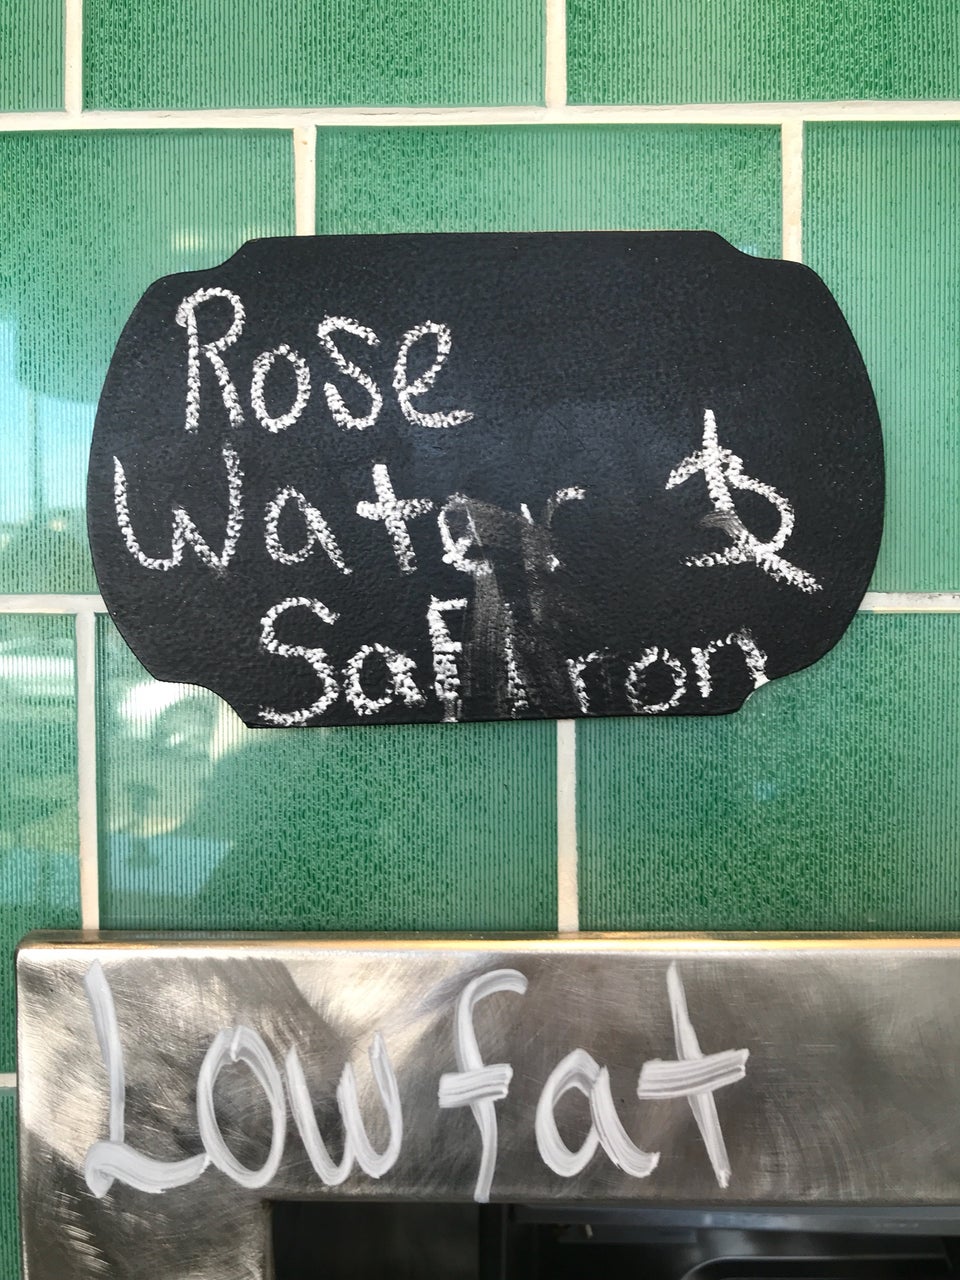 Rose
Water &
Saffron
Lowfat